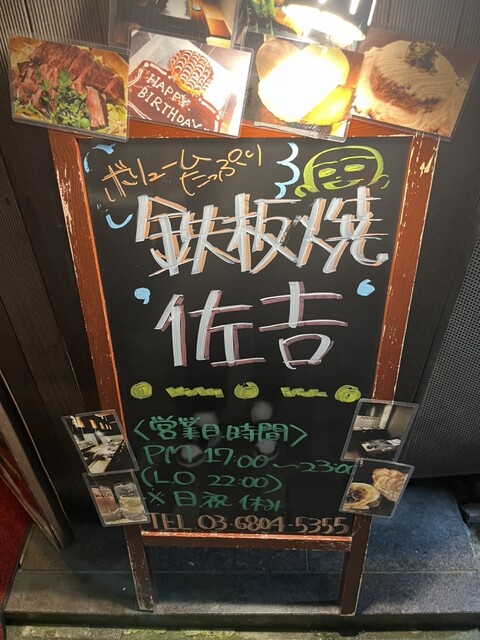 HAPPY
BIRTHDAY
ボリューム
たっぷり
鉄板焼
佐吉
〈営業日時間〉
PM 17:00〜23:00
(L.O 22:00)
※日祝 休み
TEL 03-6804-5355